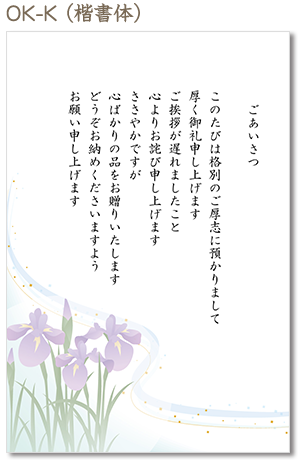 OK-K（楷書体）
ごあいさつ
このたびは格別のご厚志に預かりまして
厚く御礼申し上げます
ご挨拶が遅れましたこと
心よりお詫び申し上げます
ささやかですが
心ばかりの品をお贈りいたします
どうぞお納めくださいますよう
お願い申し上げます